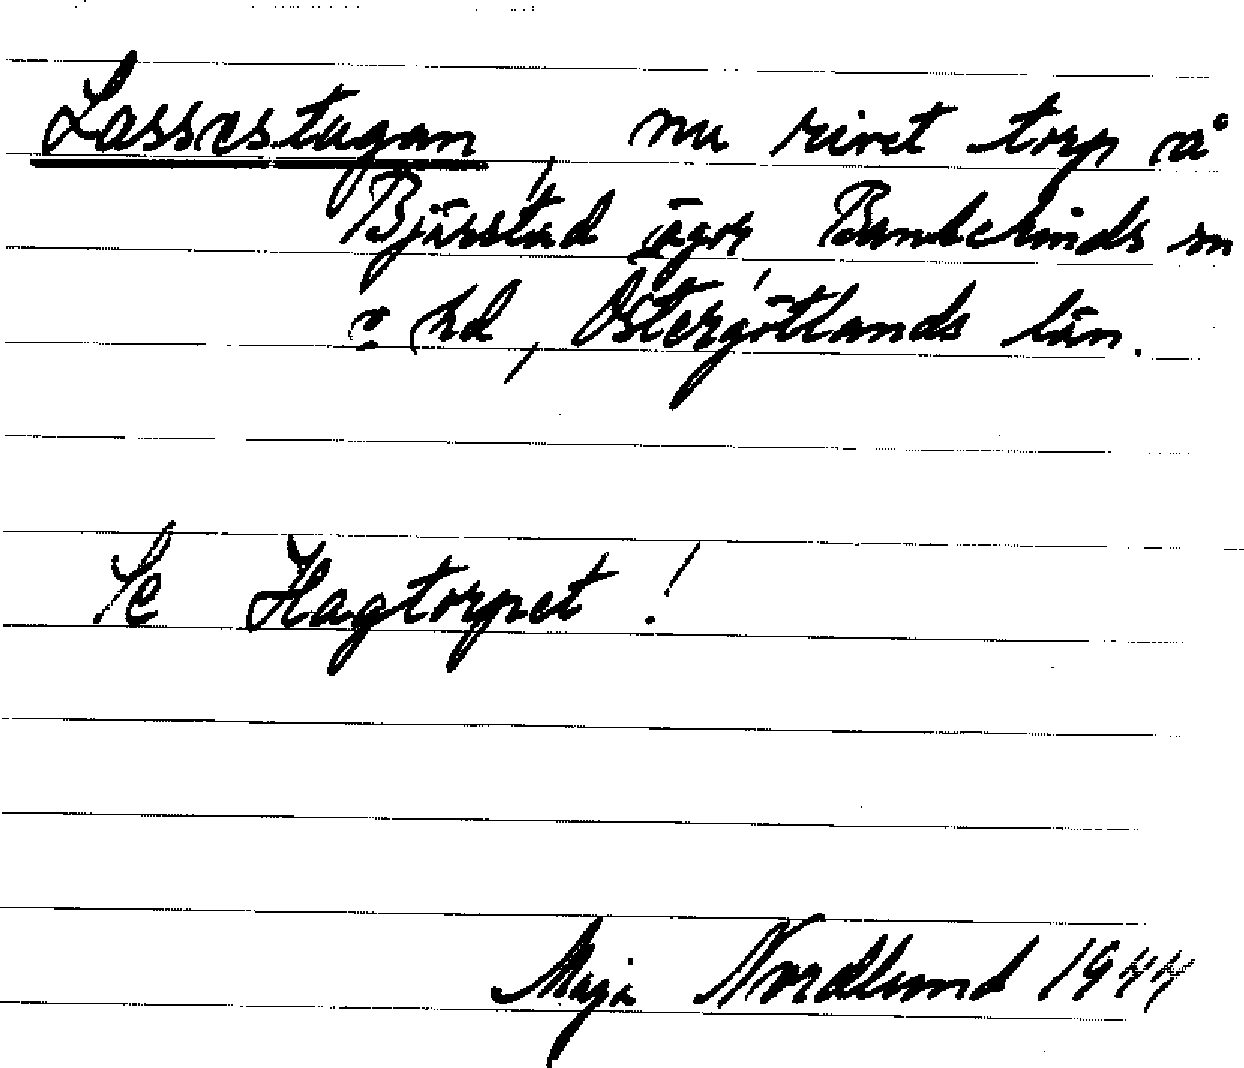 Lassestugan, nu rivet torp å
Bjärstad ägor Bankekinds sn
o hd, Östergötlands län.
Se Hagtorpet!
Maja Nordlund 1944